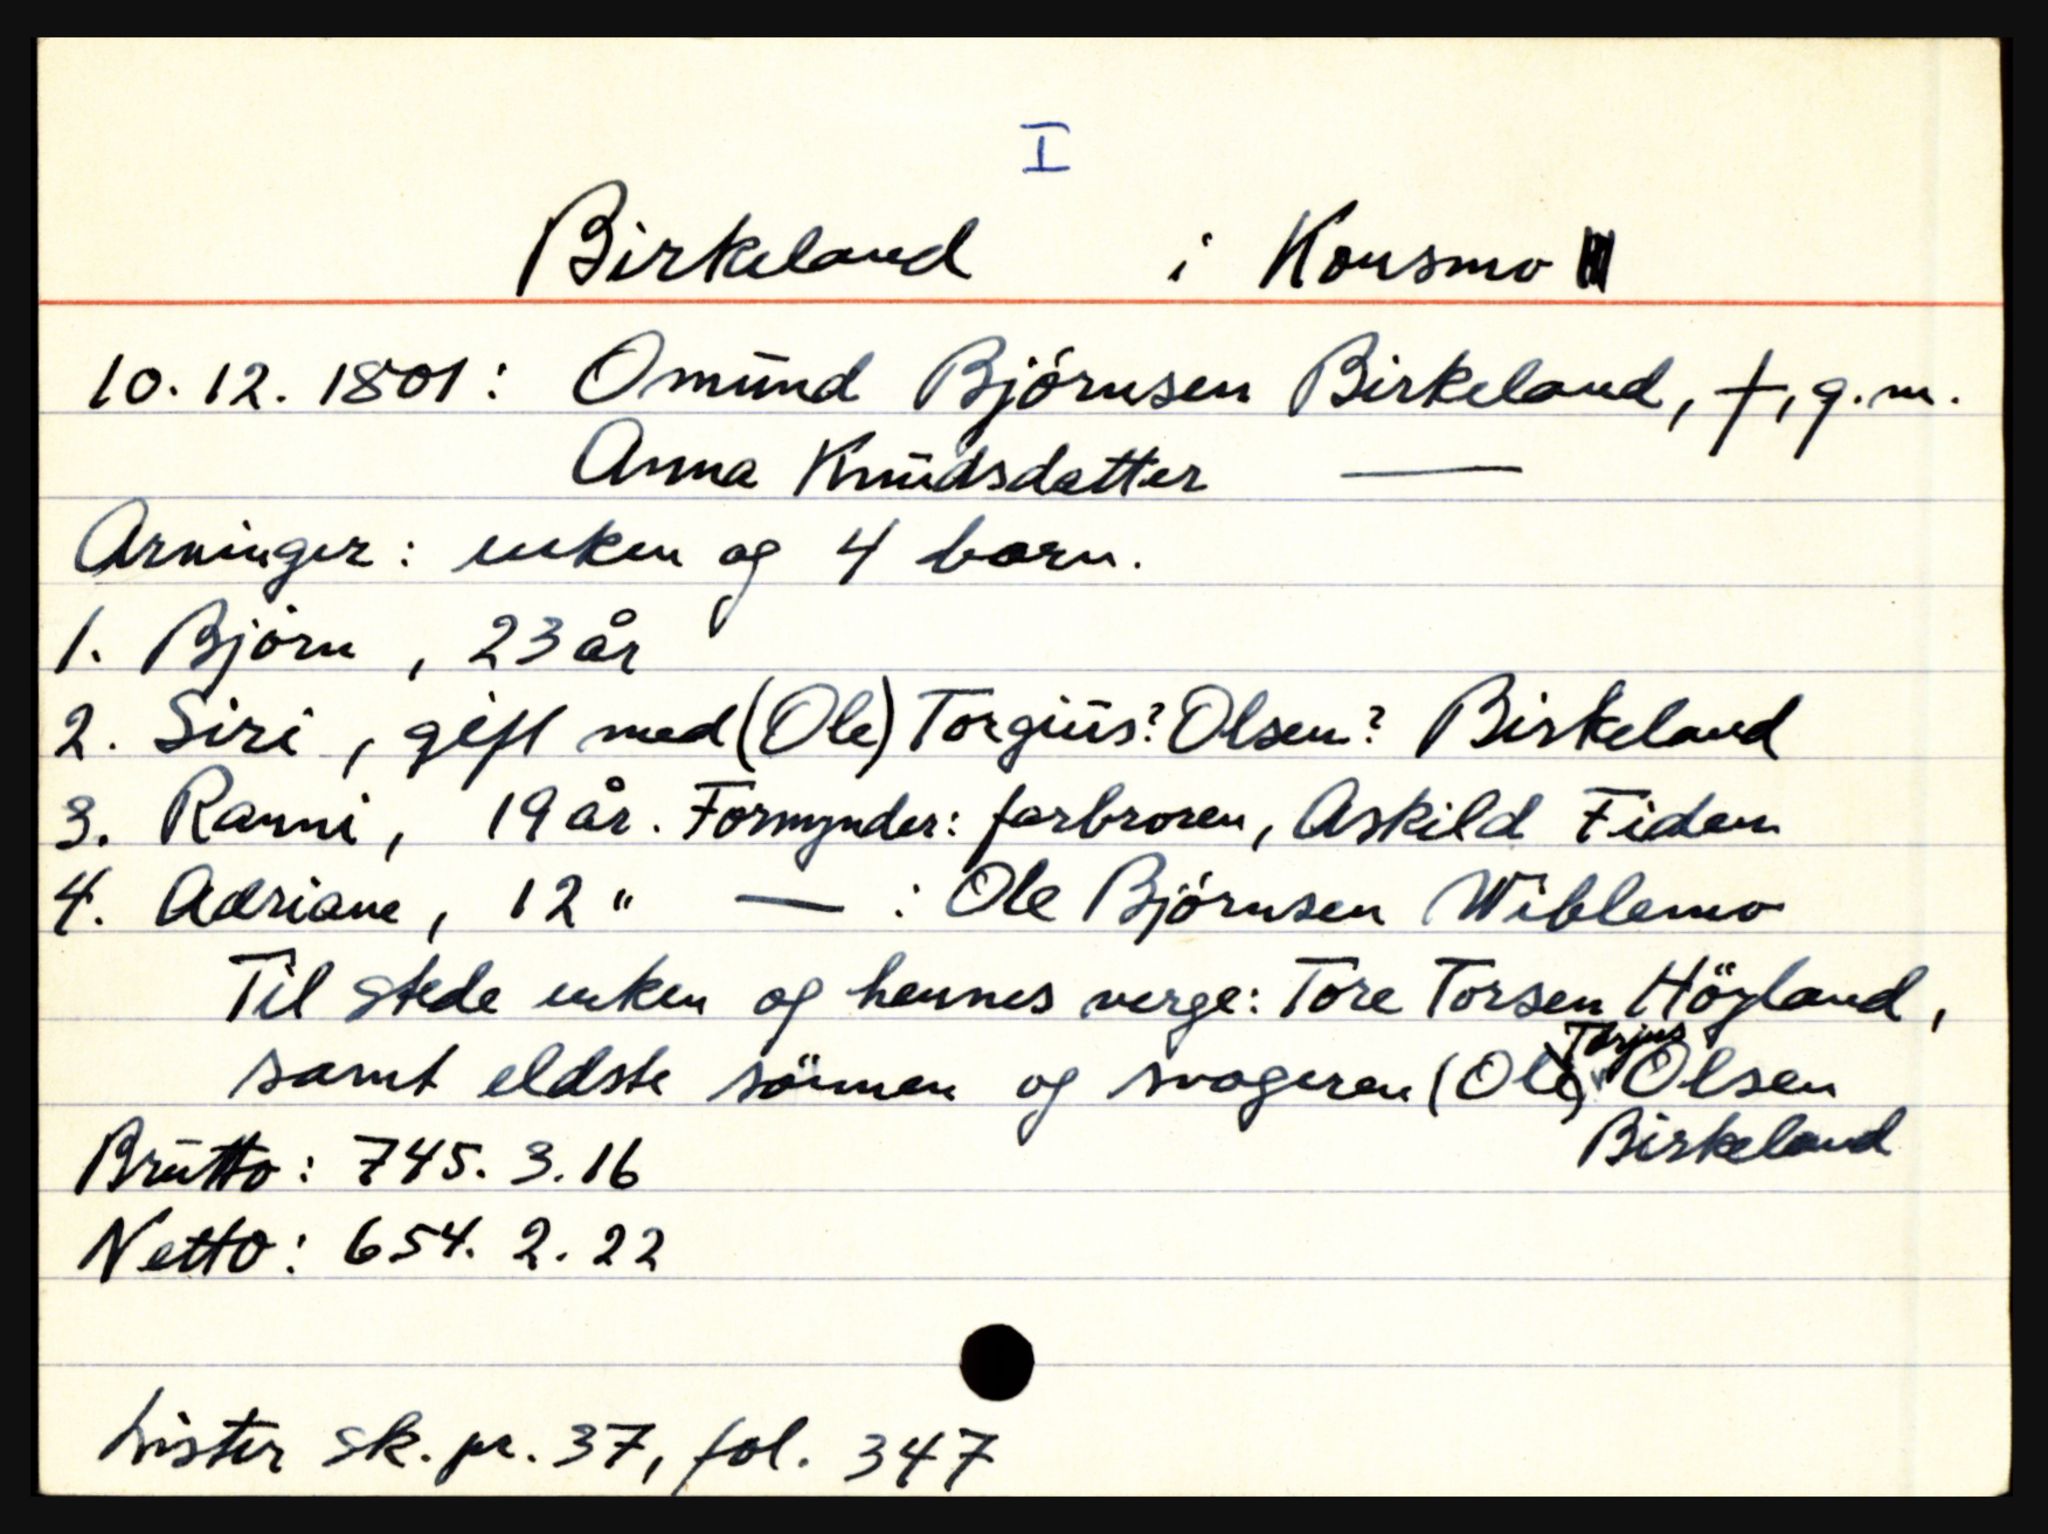 I
Birkeland i Konsmo
10.12.1801: Omund Bjørnsen Birkeland, †, g.m.
Anna Knudsdatter —
Arvinger: enken og 4 born.
1. Bjørn, 23 år
2. Siri, gift med (Ole) Torgius? Olsen? Birkeland
3. Ranni, 19 år. Formynder: farbroren, Askild Eidem
4. Adriane, 12 " — : Ole Bjørnsen Wiblemo
Til stede enken og hennes verge: Tore Torsen Högland,
Torjus
samt eldste sönnen og svogeren (Ole) Olsen
Birkeland
Brutto: 745. 3. 16
Netto: 654. 2. 22
Lister sk. pr. 37, fol. 347